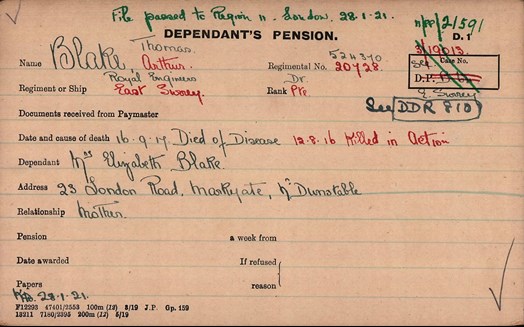 File passed to Region 11. London. 28.1.21.
n/FP/2/591
DEPENDANT'S PENSION.
D. 1
3/19013.
Thomas.
Name Blake, Arthur. Regimental No. 524370 20728.
See Date No.
Royal Engineers Dr
Regiment or Ship East Surrey. Rank Pte
E. Surrey
See DDR 810
Documents received from Paymaster
Date and cause of death 16.9.17. Died of Disease 12.8.16 Killed in Action
Dependant Mrs Elizabeth Blake.
Address 23 London Road, Markyate, Nr Dunstable
Relationship Mother.
Pension a week from
Date awarded If refused
Papers reason
28.1.21.
F12293 47401/2553 100m (12) 3/19 J.P. Gp. 159
13211 7180/2395 200m (12) 5/19